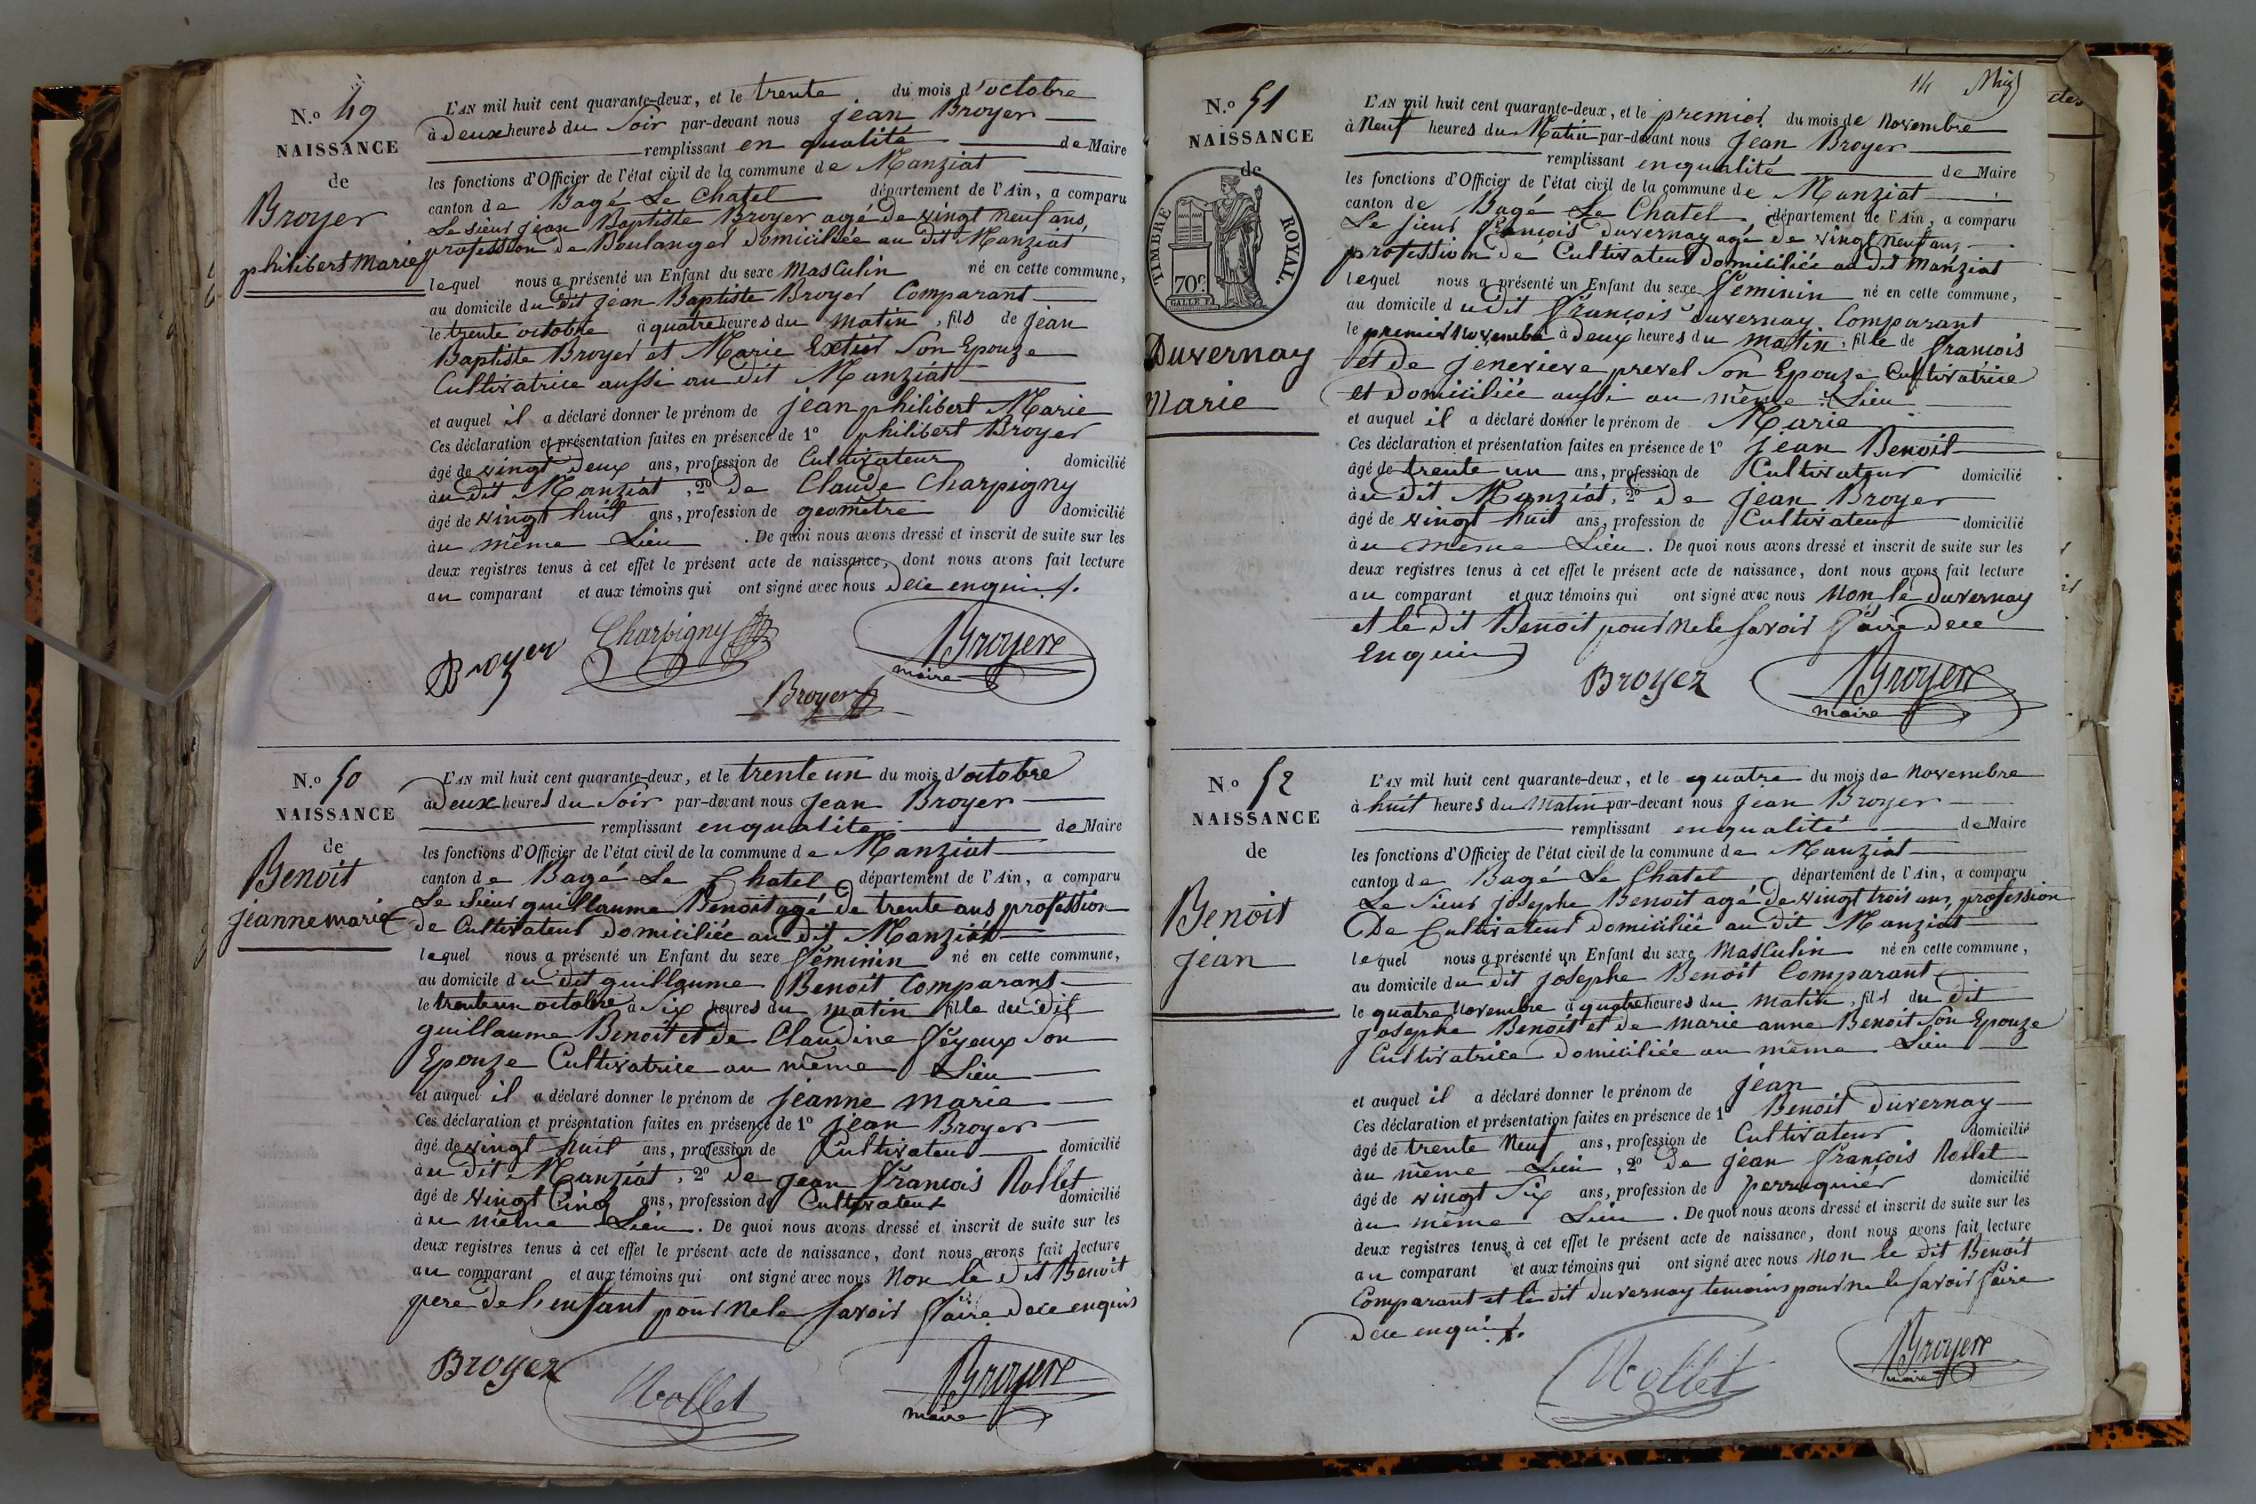 N.o 49
NAISSANCE
de
Broyer
philibert Marie
L'AN mil huit cent quarante-deux, et le trente du mois d'octobre
à Deux heures du Soir par-devant nous jean Broyer
remplissant en qualité de Maire
les fonctions d'Officier de l'état civil de la commune de Manziat
canton de Bagé Le Chatel département de l'Ain, a comparu
Le sieur jean Baptiste Broyer agé de vingt neuf ans,
profession de Boulanger domiciliée au dit Manziat
lequel nous a présenté un Enfant du sexe Masculin né en cette commune,
au domicile du dit jean Baptiste Broyer Comparant
le trente octobre à quatre heures du matin, fils de jean
Baptiste Broyer et Marie Son Epouze
Cultivatrice aussi au dit Manziat
et auquel il a déclaré donner le prénom de jean philibert Marie
Ces déclaration et présentation faites en présence de 1º philibert Broyer
âgé de vingt deux ans, profession de Cultivateur domicilié
au dit Manziat, 2º de Claude Charpigny
âgé de vingt huit ans, profession de geomètre domicilié
au même Lieu. De quoi nous avons dressé et inscrit de suite sur les
deux registres tenus à cet effet le présent acte de naissance, dont nous avons fait lecture
au comparant et aux témoins qui ont signé avec nous dece enquis
Broyer Charpigny Broyer
maire
Broyer
N.o 50
NAISSANCE
de
Benoit
jeanne marie
L'AN mil huit cent quarante-deux, et le trente un du mois d'octobre
à Deux heures du Soir par-devant nous jean Broyer
remplissant en qualité de Maire
les fonctions d'Officier de l'état civil de la commune de Manziat
canton de Bagé Le Chatel département de l'Ain, a comparu
Le Sieur guillaume Benoit agé de trente ans profession
de Cultivateur domiciliée au dit Manziat
lequel nous a présenté un Enfant du sexe féminin né en cette commune,
au domicile du dit guillaume Benoit Comparant
le trente un octobre à Six heures du matin fille du dit
guillaume Benoit et de Claudine féyeux Son
Epouze Cultivatrice au même Lieu
et auquel il a déclaré donner le prénom de jeanne marie
Ces déclaration et présentation faites en présence de 1º jean Broyer
âgé de vingt huit ans, profession de Cultivateur domicilié
au dit Manziat, 2º de jean francois Nollet
âgé de vingt Cinq ans, profession de Cultivateur domicilié
au même Lieu. De quoi nous avons dressé et inscrit de suite sur les
deux registres tenus à cet effet le présent acte de naissance, dont nous avons fait lecture
au comparant et aux témoins qui ont signé avec nous Non le dit Benoit
pere de l'enfant pour ne le Savoir faire dece enquis
Broyer Nollet Broyer
maire
14
N.o 51
NAISSANCE
de
TIMBRE ROYAL.
70c
Duvernay
Marie
L'AN mil huit cent quarante-deux, et le premier du mois de Novembre
à Neuf heures du Matin par-devant nous jean Broyer
remplissant en qualité de Maire
les fonctions d'Officier de l'état civil de la commune de Manziat
canton de Bagé Le Chatel département de l'Ain, a comparu
Le sieur francois duvernay agé de vingt neuf ans,
profession de Cultivateur domiciliée au dit Manziat
lequel nous a présenté un Enfant du sexe féminin né en cette commune,
au domicile du dit francois duvernay Comparant
le premier Novembre à deux heures du matin, fille de francois
et de jenevieve prevel Son Epouze Cultivatrice
et domiciliée aussi au même Lieu
et auquel il a déclaré donner le prénom de Marie
Ces déclaration et présentation faites en présence de 1º jean Benoit
âgé de trente un ans, profession de Cultivateur domicilié
au dit Manziat, 2º de jean Broyer
âgé de vingt huit ans, profession de Cultivateur domicilié
au même Lieu. De quoi nous avons dressé et inscrit de suite sur les
deux registres tenus à cet effet le présent acte de naissance, dont nous avons fait lecture
au comparant et aux témoins qui ont signé avec nous Non le duvernay
et le dit Benoit pour ne le savoir faire dece
Enquis
Broyer Broyer
maire
N.o 52
NAISSANCE
de
Benoit
jean
L'AN mil huit cent quarante-deux, et le quatre du mois de Novembre
à huit heures du Matin par-devant nous jean Broyer
remplissant en qualité de Maire
les fonctions d'Officier de l'état civil de la commune de Manziat
canton de Bagé Le Chatel département de l'Ain, a comparu
Le Sieur josephe Benoit agé de vingt trois ans, profession
De Cultivateur domiciliée au dit Manziat
lequel nous a présenté un Enfant du sexe Masculin né en cette commune,
au domicile du dit josephe Benoit Comparant
le quatre Novembre à quatre heures du matin, fils du dit
josephe Benoit et de marie anne Benoit Son Epouze
Cultivatrice domiciliée au même Lieu
et auquel il a déclaré donner le prénom de jean
Ces déclaration et présentation faites en présence de 1º Benoit duvernay
âgé de trente Neuf ans, profession de Cultivateur domicilié
au même Lieu, 2º de jean francois Nollet
âgé de vingt Six ans, profession de perruquier domicilié
au même Lieu. De quoi nous avons dressé et inscrit de suite sur les
deux registres tenus à cet effet le présent acte de naissance, dont nous avons fait lecture
au comparant et aux témoins qui ont signé avec nous Non le dit Benoit
Comparant et le dit duvernay temoins pour ne le savoir faire
dece enquis
Nollet Broyer
maire